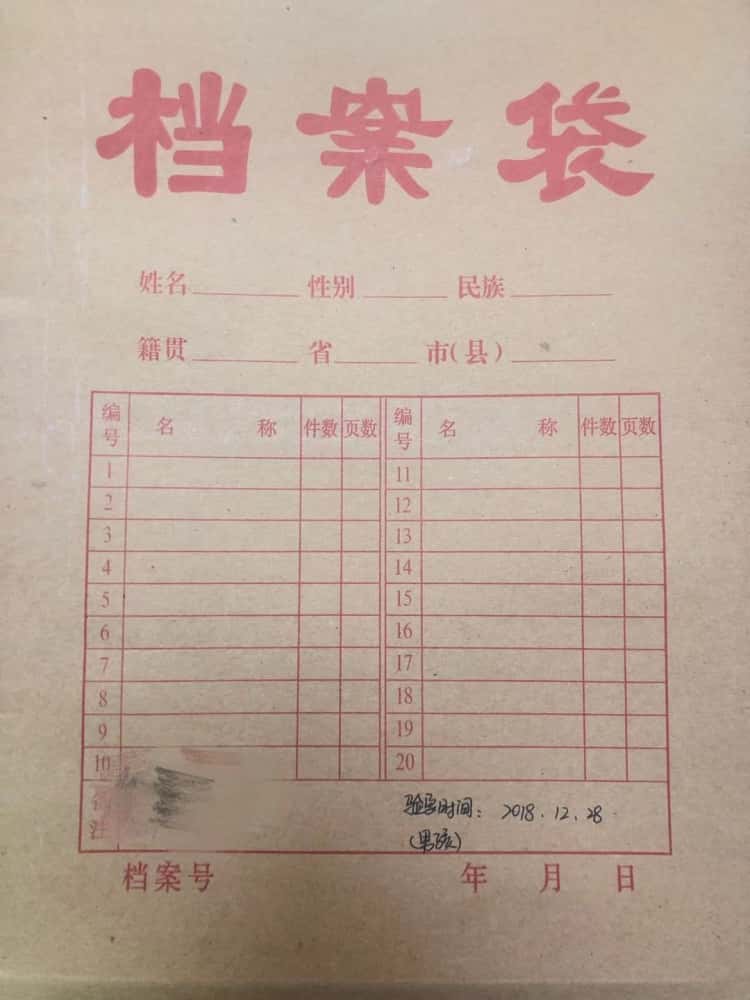 档案袋
姓名 性别 民族
籍贯 省 市(县)
编号 名称 件数 页数 编号 名称 件数 页数
1 11
2 12
3 13
4 14
5 15
6 16
7 17
8 18
9 19
10 20
注 时间: 2018.12.28
(男孩)
档案号 年 月 日